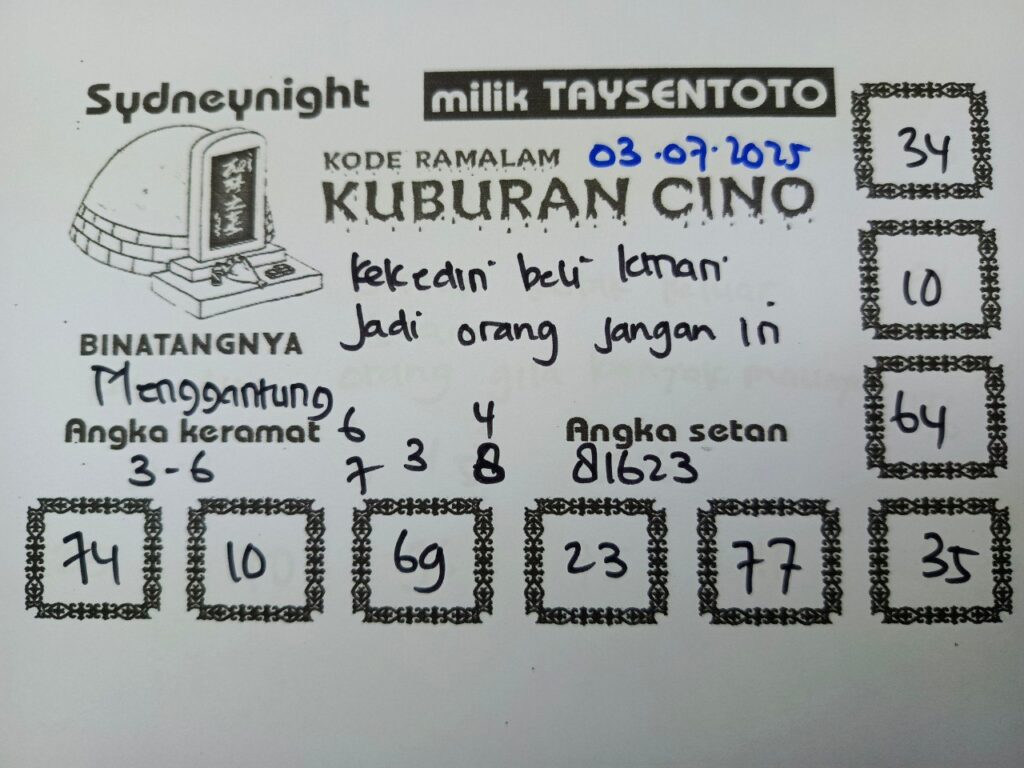 Sydneynight
milik TAYSENTOTO
KODE RAMALAM 03.07.2025
KUBURAN CINO
34
kekediri beli lemari
Jadi orang jangan iri
10
BINATANGNYA
Menggantung
64
Angka keramat
3-6
6 4
7 3 8
Angka setan
81623
74 10 69 23 77 35